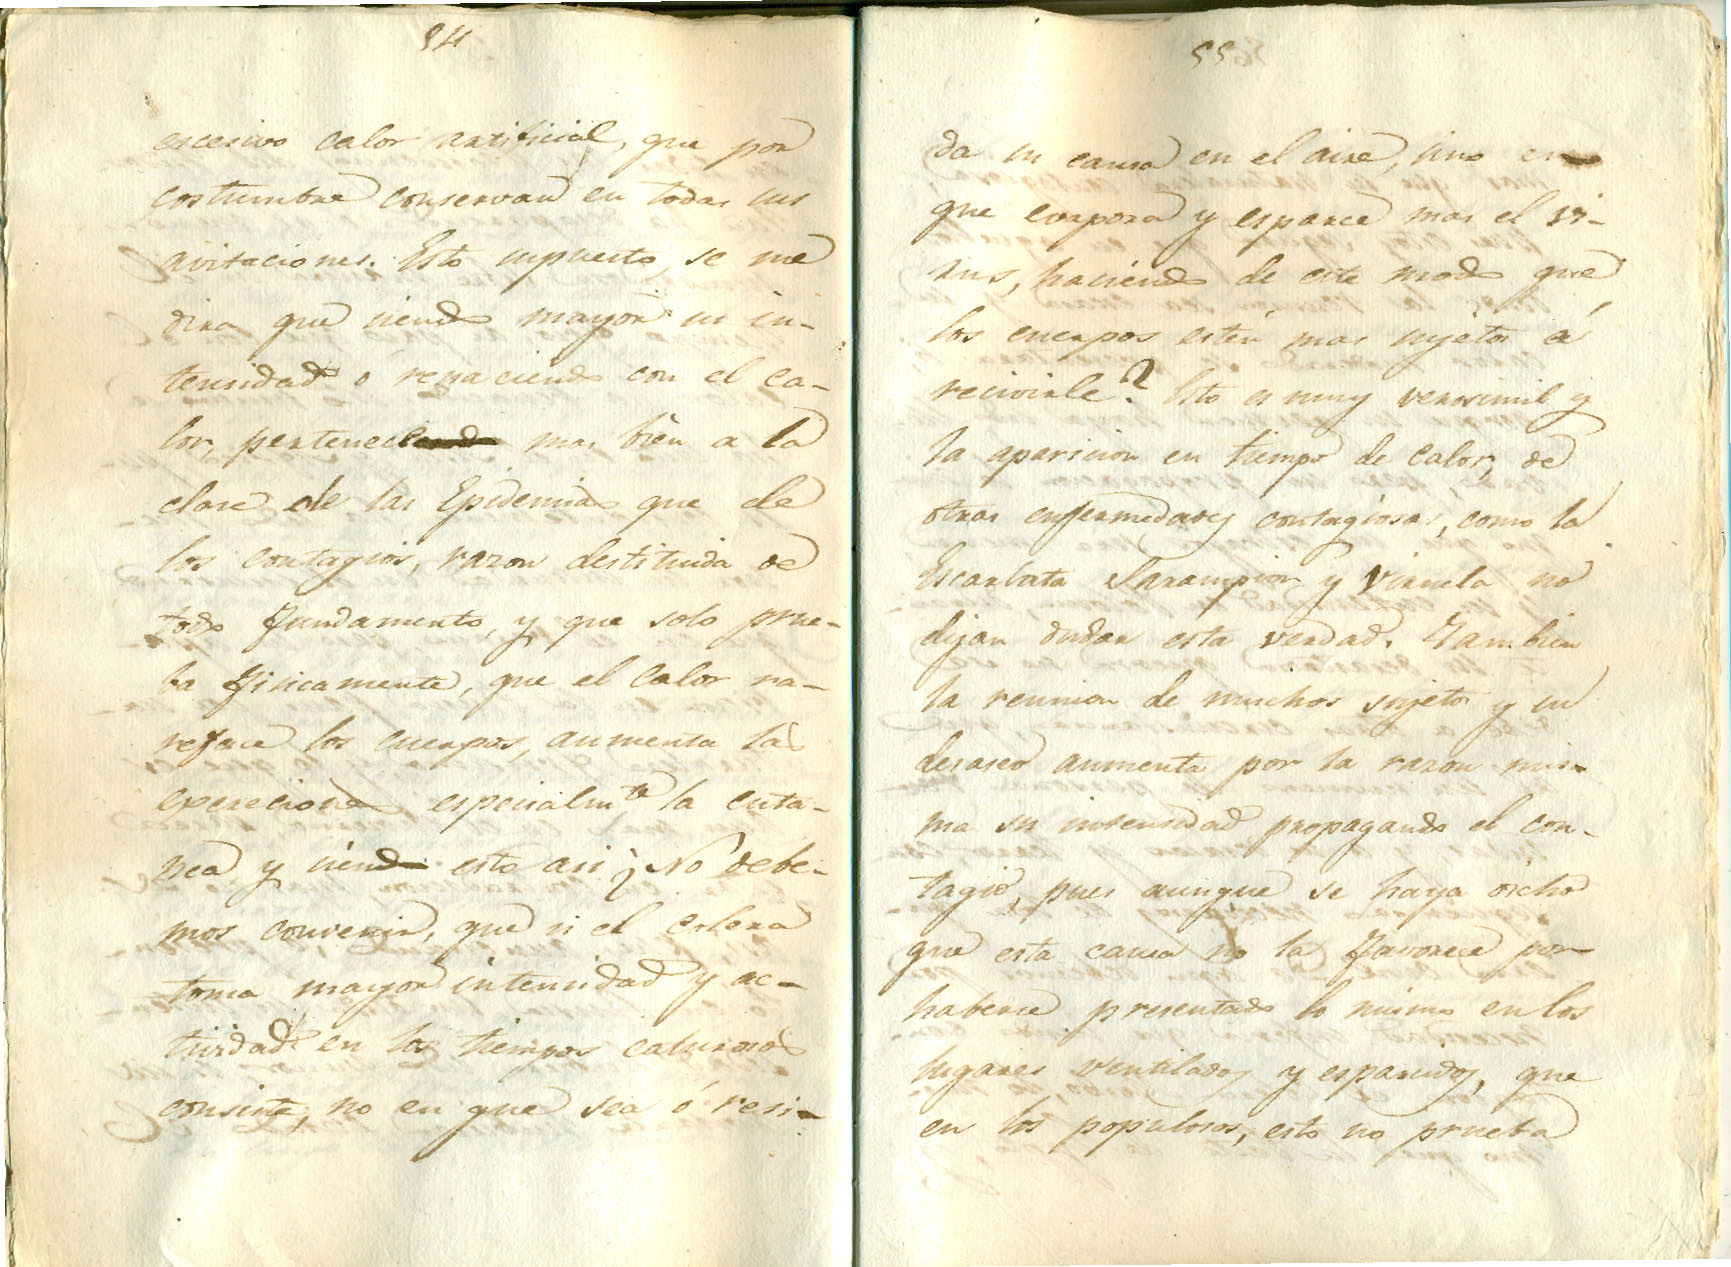 54
escesivo calor artificial, que por
costumbre conservan en todas sus
avitaciones. Esto supuesto, se me
dira que siendo mayor su in-
tensidad ó renaciendo con el ca-
lor, pertenece mas bien a la
clase de las Epidemias que de
los contagios, razon destituida de
todo fundamento, y que solo prue-
ba fisicamente, que el calor ra-
reface los cuerpos, aumenta las
especialmte la cuta-
nea y siendo esto asi ¿No debe-
mos convenir, que si el colera
toma mayor intensidad y ac-
tividad en los tiempos calurosos
consiste, no en que sea ó resi-
55
da su causa en el aire, sino en
que evapora y esparce mas el vi-
rus, haciendo de este modo que
los cuerpos estén mas sujetos á
recivirle? Esto es muy verosimil y
la aparicion en tiempo de calor, de
otras enfermedades contagiosas, como la
Escarlata Sarampion y Viruela no
dejan dudar esta verdad. Tambien
la reunion de muchos sujetos y su
desaseo aumenta por la razon mis-
ma su intensidad propagando el con-
tagio, pues aunque se haya dicho
que esta causa no la favorece por
haberse presentado lo mismo en los
lugares ventilados y esparcidos, que
en los populosos, esto no prueba